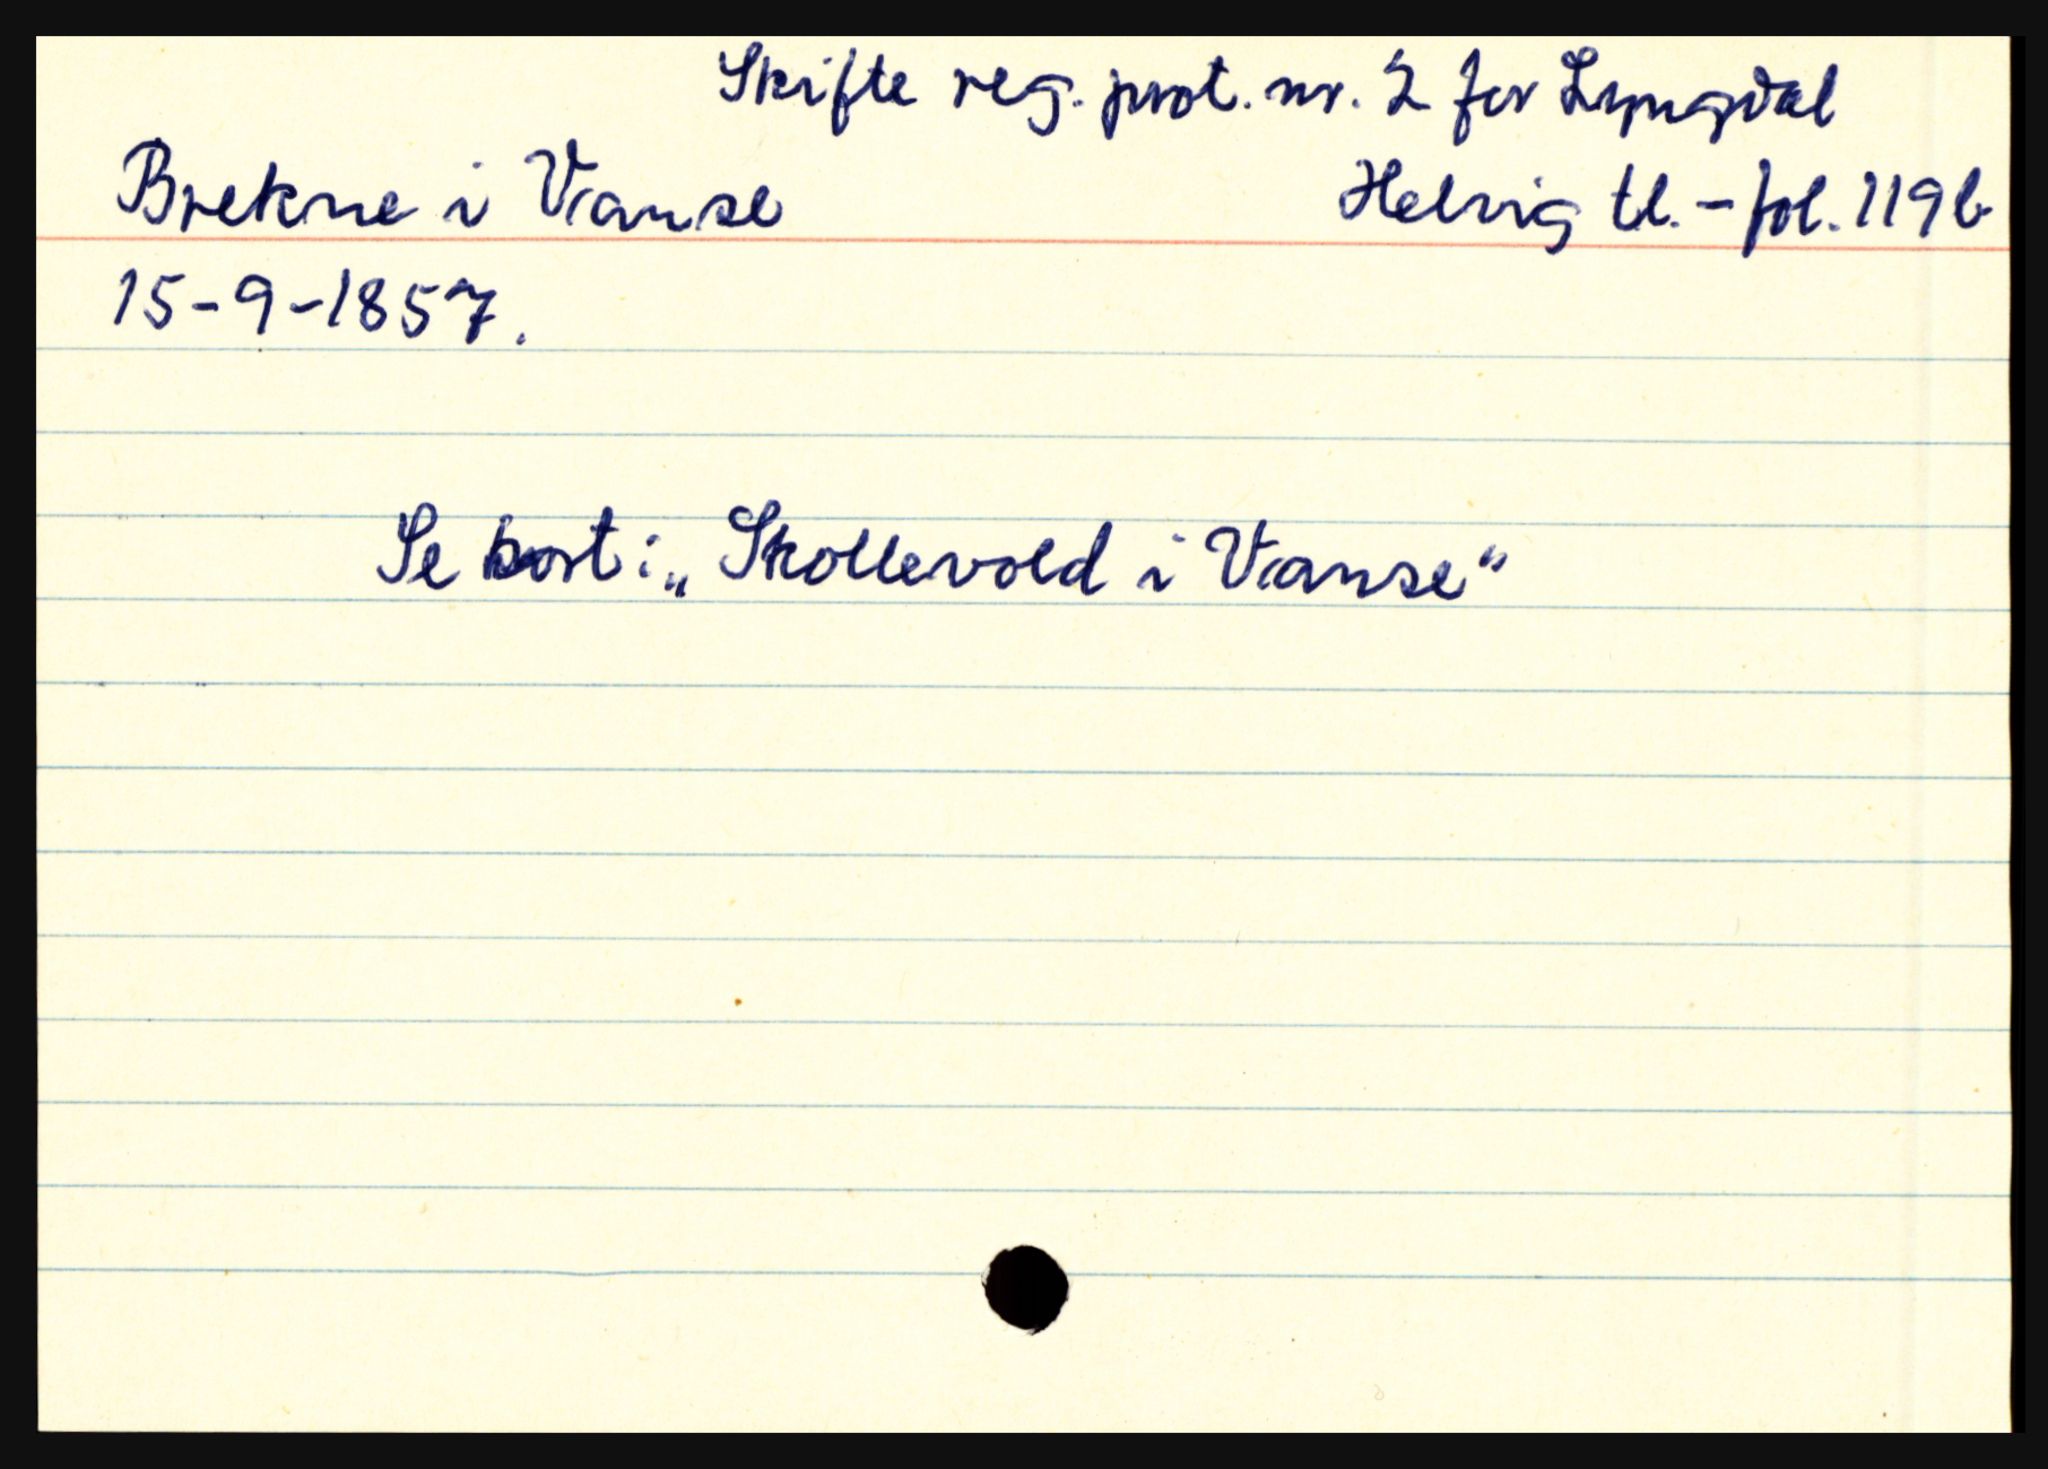 Skifte reg. prot. nr. 2 for Lyngdal
Brekne i Vanse Helvig tl. - fol. 119b
15-9-1857.
Se kort: „Skollevold i Vanse"